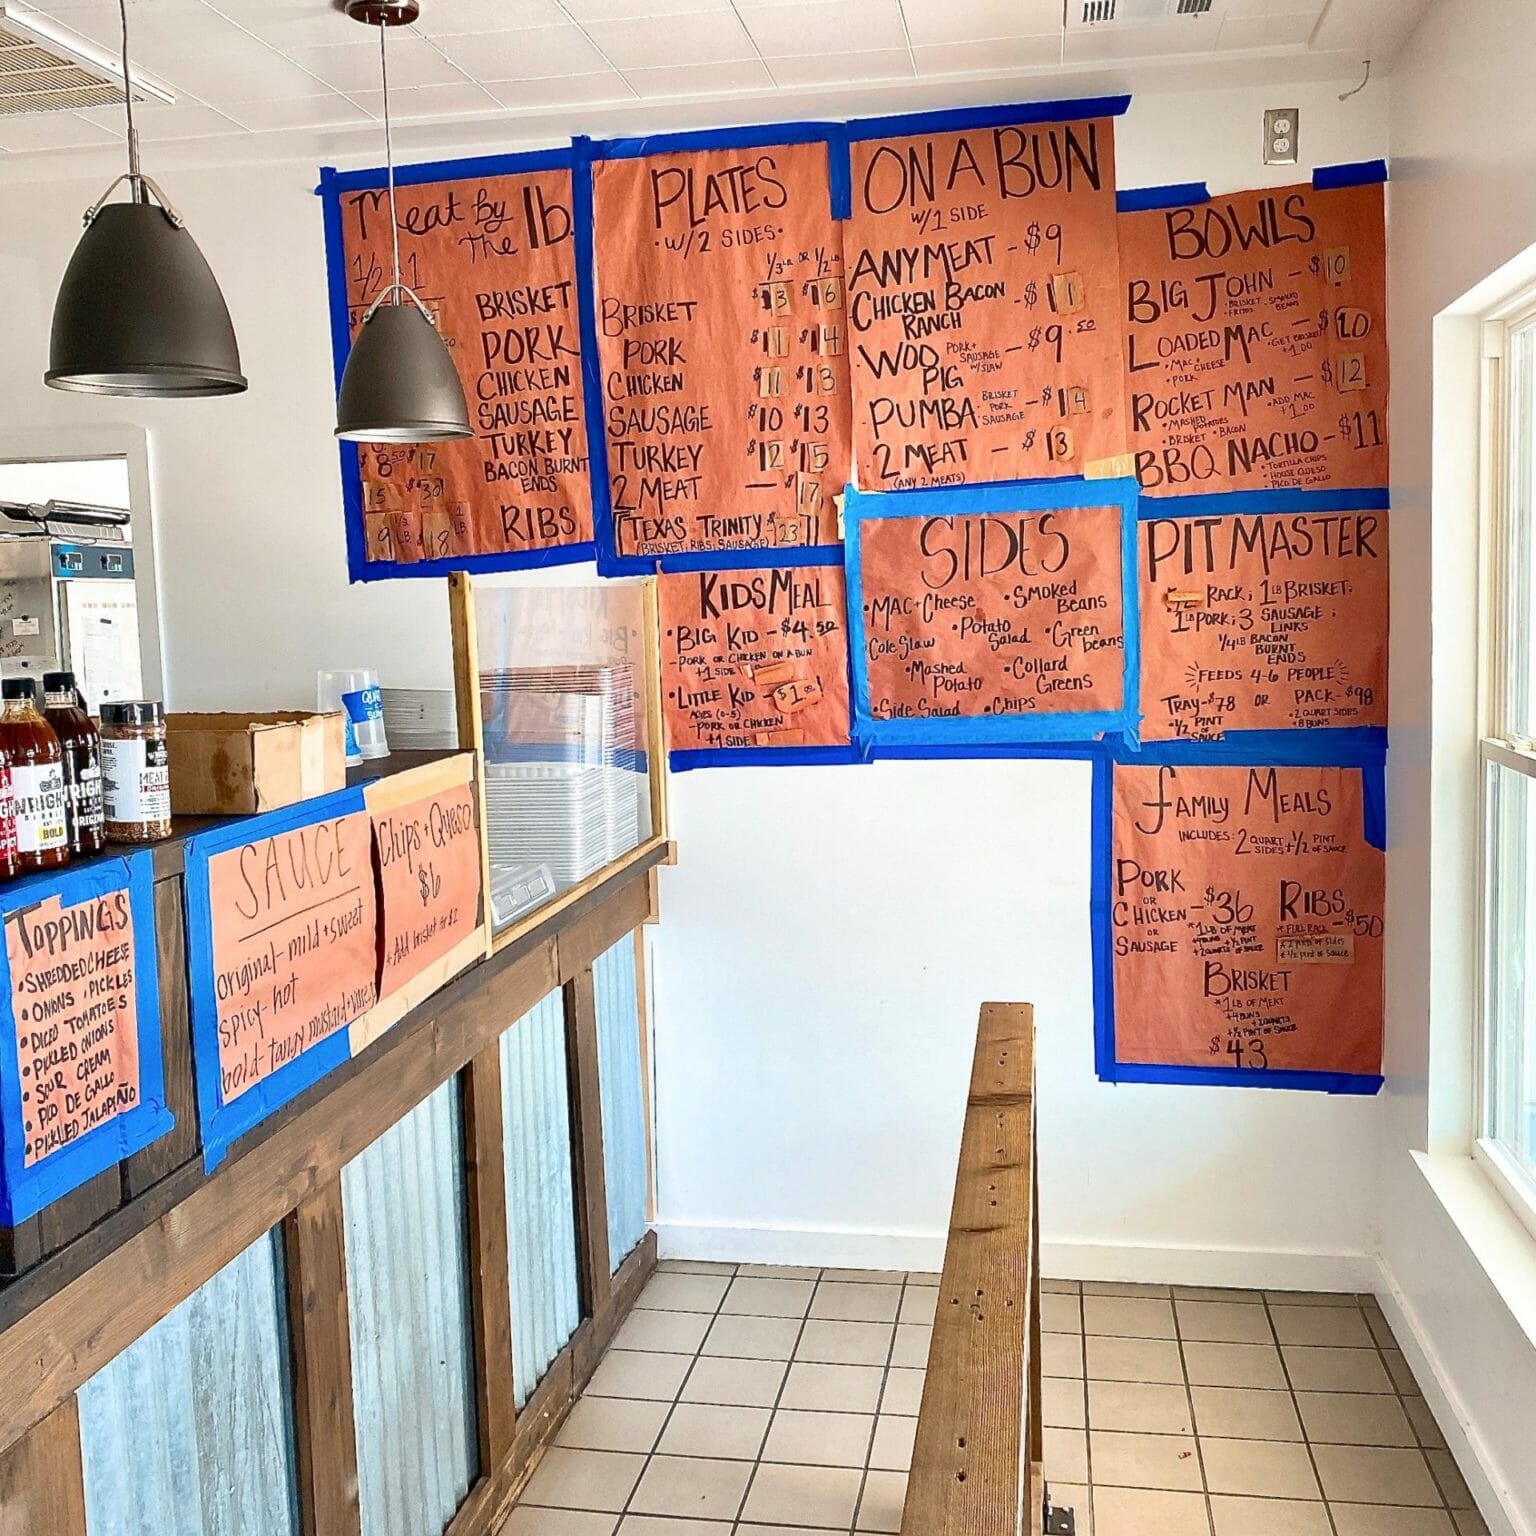 Meat by
the lb.
1/2 1
BRISKET
PORK
CHICKEN
SAUSAGE
TURKEY
$8.50 $17
BACON BURNT
ENDS
15 $30
RIBS
9 1/2 LB $18 1 LB.
PLATES
• W/2 SIDES •
1/3 LB OR 1/2 LB
BRISKET $13 $16
PORK $11 $14
CHICKEN $11 $13
SAUSAGE $10 $13
TURKEY $12 $15
2 MEAT — $17
TEXAS TRINITY $23
(BRISKET, RIBS, SAUSAGE)
ON A BUN
W/1 SIDE
ANY MEAT - $9
CHICKEN BACON
RANCH - $11
WOO
PIG
PORK +
SAUSAGE
W/SLAW
— $9.50
PUMBA
BRISKET
PORK
SAUSAGE
- $14
2 MEAT - $13
(ANY 2 MEATS)
BOWLS
BIG JOHN — $10
• BRISKET • SMOKED
• FRITOS BEANS
LOADED MAC — $10
• MAC + CHEESE
• PORK
• GET BRISKET
+1.00
ROCKET MAN — $12
• MASHED
POTATOES
• BRISKET • BACON
• ADD MAC
+1.00
BBQ NACHO - $11
• TORTILLA CHIPS
• HOUSE QUESO
• PICO DE GALLO
KIDS MEAL
• BIG KID - $4.50
- PORK OR CHICKEN ON A BUN
+1 SIDE
• LITTLE KID - $1.00!
AGES (0-5)
- PORK OR CHICKEN
+1 SIDE
SIDES
• MAC + Cheese
• Smoked
Beans
Cole Slaw
• Potato
Salad
• Green
beans
• Mashed
Potato
• Collard
Greens
• Side Salad
• Chips
PIT MASTER
RACK; 1 LB BRISKET;
1 LB PORK; 3 SAUSAGE;
LINKS
1/4 LB BACON
BURNT
ENDS
FEEDS 4-6 PEOPLE
TRAY - $78 OR PACK - $98
• 1/2 PINT
OF SAUCE
• 2 QUART SIDES
• 8 BUNS
FAMILY MEALS
INCLUDES: 2 QUART
SIDES + 1/2 PINT
OF SAUCE
PORK
OR
CHICKEN - $36
OR
SAUSAGE
* 1 LB OF MEAT
RIBS
- $50
* FULL RACK
* 1/2 pint of Sauce
BRISKET
* 1 LB OF MEAT
+ 4 BUNS
+ 1/2 PINT OF SAUCE
$43
TOPPINGS
• SHREDDED CHEESE
• ONIONS • PICKLES
• DICED TOMATOES
• PICKLED ONIONS
• SOUR CREAM
• PICO DE GALLO
• PICKLED JALAPEÑO
SAUCE
original - mild + sweet
spicy - hot
bold - tangy mustard +
Chips + Queso
$6
+ Add brisket for $2
BOLD
MEAT